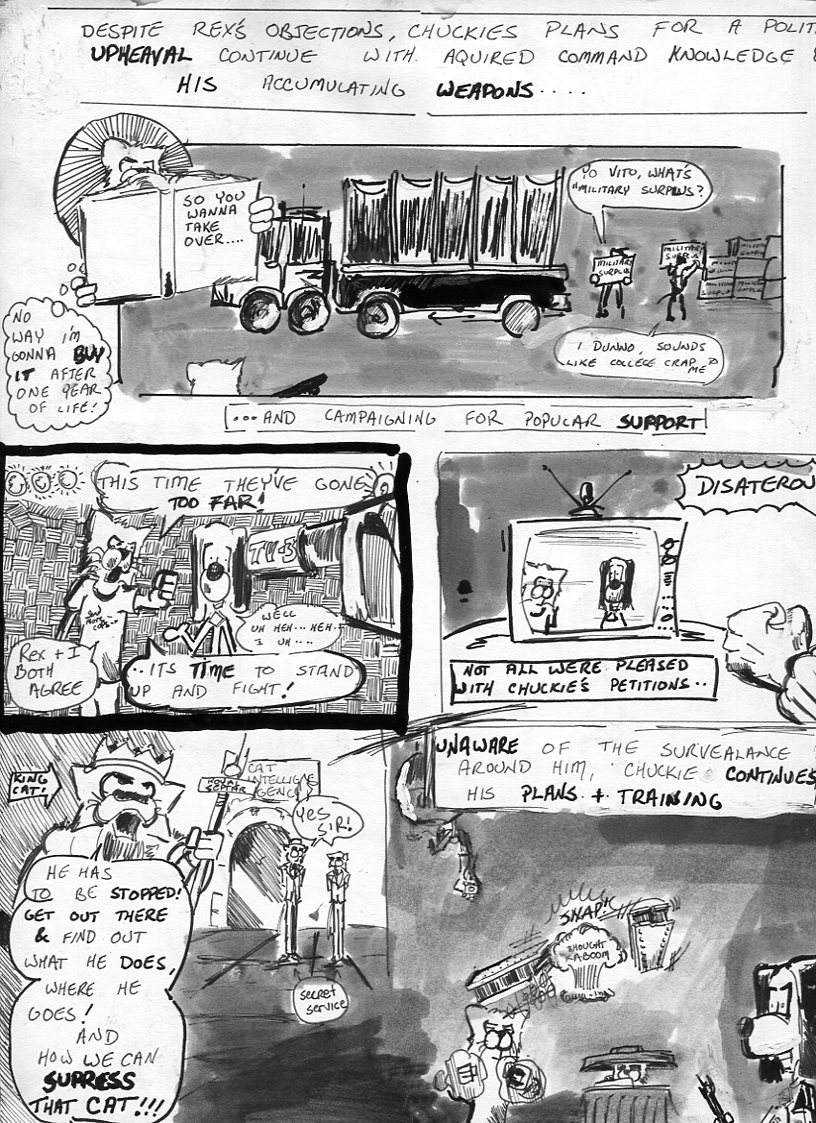 DESPITE REX'S OBJECTIONS, CHUCKIES PLANS FOR A POLIT
UPHEAVAL CONTINUE WITH AQUIRED COMMAND KNOWLEDGE &
HIS ACCUMULATING WEAPONS....
SO YOU
WANNA
TAKE
OVER....
YO VITO, WHAT'S
"MILITARY SURPLUS?
MILITARY
SURPLUS
MILITARY
SURPLUS
MILITARY
SURPLUS
I DUNNO, SOUNDS
LIKE COLLEGE CRAP
ME
NO
WAY I'M
GONNA BUY
IT AFTER
ONE YEAR
OF LIFE!
...AND CAMPAIGNING FOR POPULAR SUPPORT
THIS TIME THEY'VE GONE
TOO FAR!
TV-3
WELL
UH HEH... HEH..
I UH....
REX + I
BOTH
AGREE
..ITS TIME TO STAND
UP AND FIGHT!
DISATEROU
NOT ALL WERE PLEASED
WITH CHUCKIE'S PETITIONS..
KING
CAT!
CAT
INTELLIGNE
AGENCY
YES
SIR!
HE HAS
TO BE STOPPED!
GET OUT THERE
& FIND OUT
WHAT HE DOES,
WHERE HE
GOES!
AND
HOW WE CAN
SUPRESS
THAT CAT!!!
SECRET
SERVICE
UNAWARE OF THE SURVEALANCE
AROUND HIM, CHUCKIE CONTINUES
HIS PLANS + TRAINING
SNAP!!
THOUGHT
KABOOM